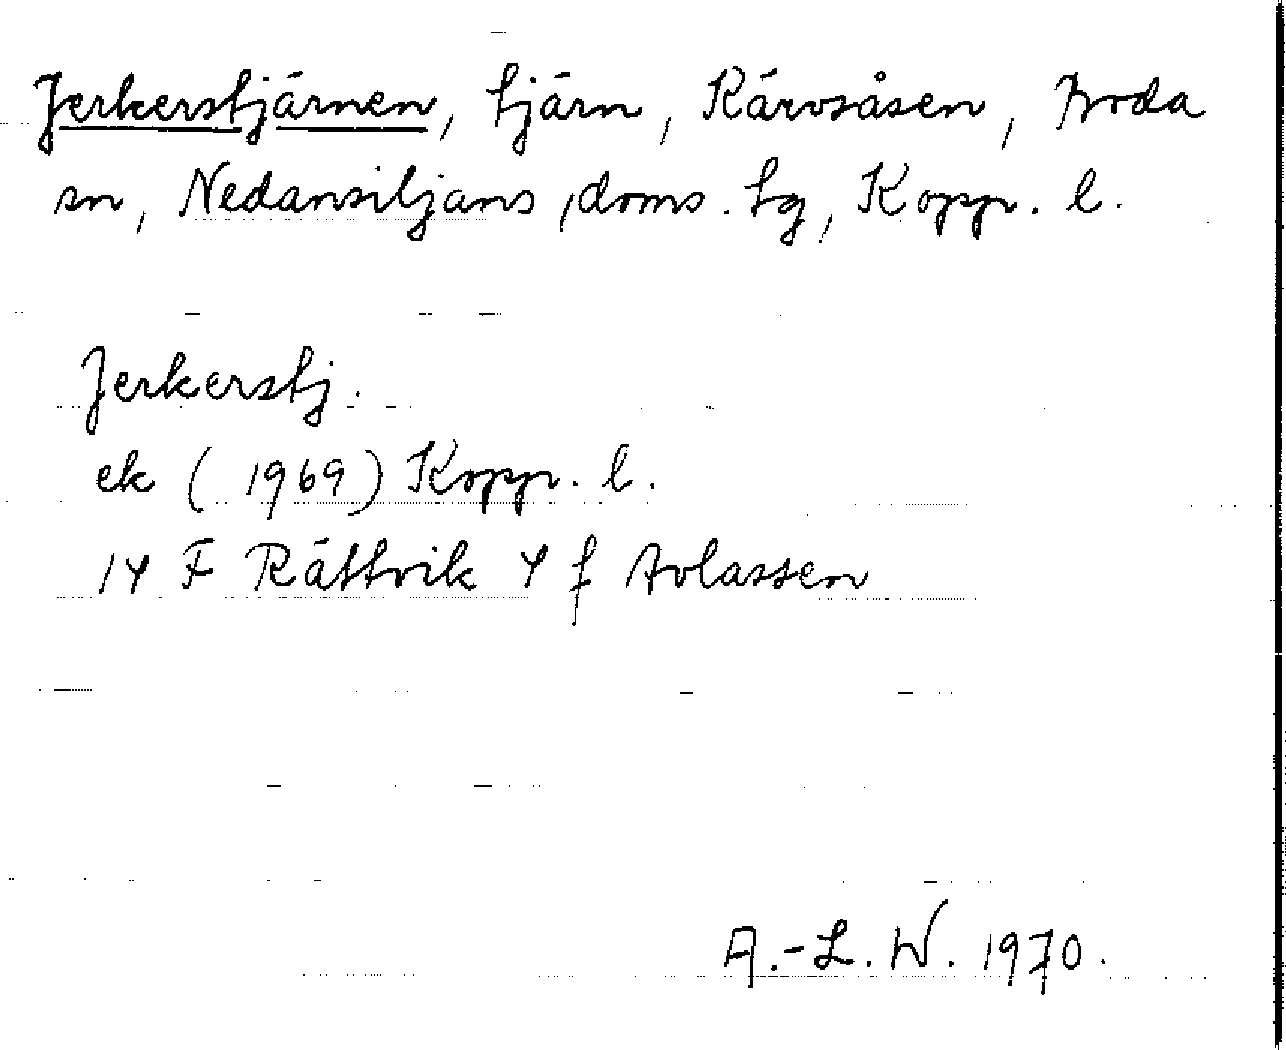 Jerkerstjärnen, tjärn, Kärvsåsen, Boda
sn, Nedansiljans doms. tg, Kopp. l.
Jerkerstj.
ek (1969) Kopp. l.
14 F Rättvik 4 f Avlassen
A.-L. W. 1970.